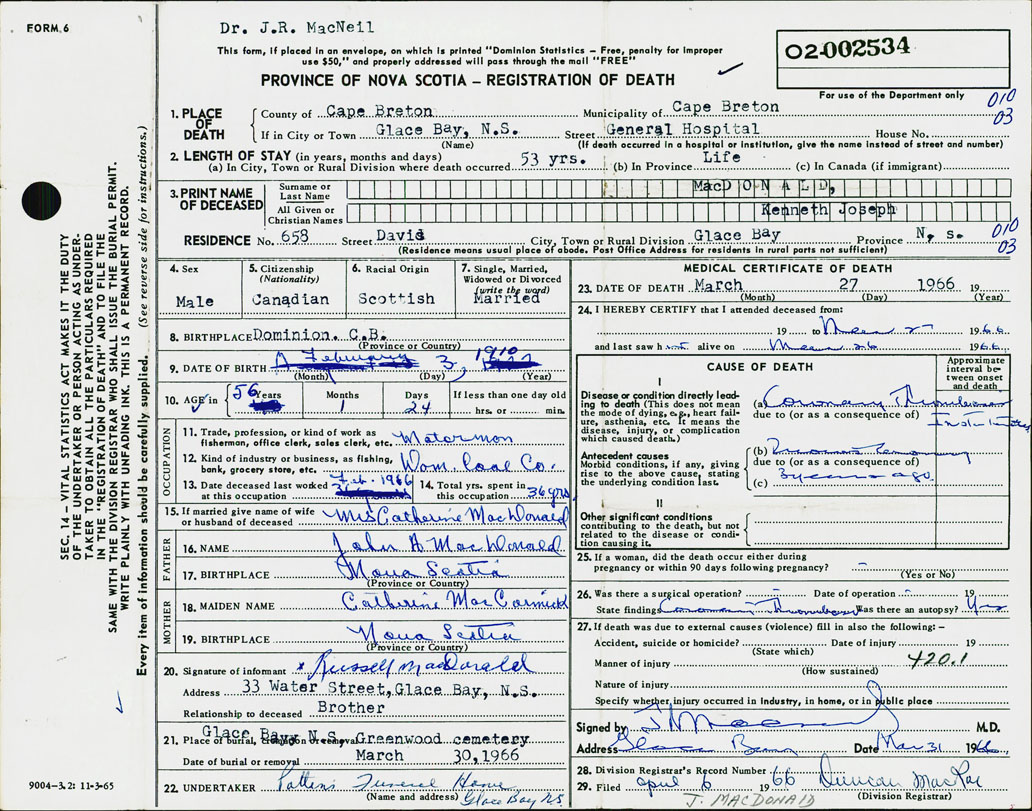 FORM 6
Dr. J.R. MacNeil
This form, if placed in an envelope, on which is printed "Dominion Statistics – Free, penalty for improper
use $50," and properly addressed will pass through the mail "FREE"
PROVINCE OF NOVA SCOTIA – REGISTRATION OF DEATH
02-002534
For use of the Department only
010
03
1. PLACE OF DEATH
County of Cape Breton Municipality of Cape Breton
If in City or Town Glace Bay, N.S. Street General Hospital House No.
(Name) (If death occurred in a hospital or institution, give the name instead of street and number)
2. LENGTH OF STAY (in years, months and days)
(a) In City, Town or Rural Division where death occurred 53 yrs. (b) In Province Life (c) In Canada (if immigrant)
3. PRINT NAME OF DECEASED
Surname or Last Name MacDONALD,
All Given or Christian Names Kenneth Joseph
RESIDENCE No. 658 Street David City, Town or Rural Division Glace Bay Province N, s.
(Residence means usual place of abode. Post Office Address for residents in rural parts not sufficient)
010
03
SEC. 14 – VITAL STATISTICS ACT MAKES IT THE DUTY
OF THE UNDERTAKER OR PERSON ACTING AS UNDER-
TAKER TO OBTAIN ALL THE PARTICULARS REQUIRED
IN THE "REGISTRATION OF DEATH" AND TO FILE THE
SAME WITH THE DIVISION REGISTRAR WHO SHALL ISSUE THE BURIAL PERMIT.
WRITE PLAINLY WITH UNFADING INK. THIS IS A PERMANENT RECORD.
Every item of information should be carefully supplied. (See reverse side for instructions.)
4. Sex
Male
5. Citizenship
(Nationality)
Canadian
6. Racial Origin
Scottish
7. Single, Married,
Widowed or Divorced
(write the word)
Married
8. BIRTHPLACE Dominion. C.B.
(Province or Country)
9. DATE OF BIRTH February 3, 1910
(Month) (Day) (Year)
10. AGE in 56 Years Months 1 Days 24 If less than one day old
hrs. or min.
OCCUPATION
11. Trade, profession, or kind of work as
fisherman, office clerk, sales clerk, etc. Motorman
12. Kind of industry or business, as fishing,
bank, grocery store, etc. Dom. Coal Co.
13. Date deceased last worked
at this occupation Feb. 1966
14. Total yrs. spent in
this occupation 36 yrs
15. If married give name of wife
or husband of deceased Mrs Catherine MacDonald
FATHER
16. NAME John A MacDonald
17. BIRTHPLACE Nova Scotia
(Province or Country)
MOTHER
18. MAIDEN NAME Catherine MacCormick
19. BIRTHPLACE Nova Scotia
(Province or Country)
20. Signature of informant x Russell MacDonald
Address 33 Water Street, Glace Bay, N.S.
Relationship to deceased Brother
21. Place of burial, cremation or removal Glace Bay, N.S. Greenwood cemetery
Date of burial or removal March 30, 1966
22. UNDERTAKER Pattens Funeral Home
(Name and address) Glace Bay NS
9004–3.2: 11-3-65
MEDICAL CERTIFICATE OF DEATH
23. DATE OF DEATH March 27 1966 19
(Month) (Day) (Year)
24. I HEREBY CERTIFY that I attended deceased from:
19 to Mar 27 1966
and last saw him alive on Mar 26 1966
CAUSE OF DEATH
Approximate
interval be-
tween onset
and death
I
Disease or condition directly lead-
ing to death (This does not mean
the mode of dying, e.g., heart fail-
ure, asthenia, etc. It means the
disease, injury, or complication
which caused death.)
(a) Coronary Thrombosis
due to (or as a consequence of)
Antecedent causes
Morbid conditions, if any, giving
rise to the above cause, stating
the underlying condition last.
(b) Coronary
due to (or as a consequence of)
(c) 3 years ago
II
Other significant conditions
contributing to the death, but not
related to the disease or condi-
tion causing it.
25. If a woman, did the death occur either during
pregnancy or within 90 days following pregnancy? –
(Yes or No)
26. Was there a surgical operation? – Date of operation – 19
State findings Coronary Thrombosis Was there an autopsy? Yes
27. If death was due to external causes (violence) fill in also the following: –
Accident, suicide or homicide? Date of injury 19
(State which)
Manner of injury 420.1
(How sustained)
Nature of injury
Specify whether injury occurred in industry, in home, or in public place
Signed by M.D.
Address Glace Bay Date Mar 31 1966
28. Division Registrar's Record Number
29. Filed April 6 1966 Duncan MacRae
(Division Registrar)
J. MACDONALD